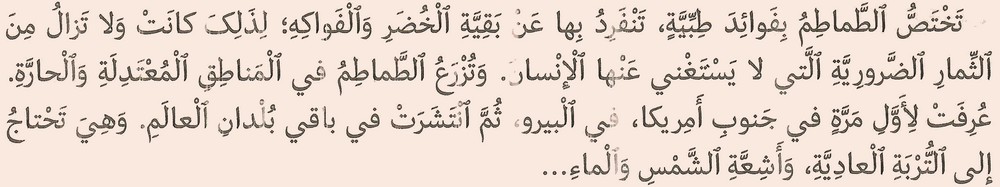 تَخْتَصُّ ٱلطَّماطِمُ بِفَوائِدَ طِبِّيَّةٍ، تَنْفَرِدُ بِها عَنْ بَقِيَّةِ ٱلْخُضَرِ وَٱلْفَواكِهِ؛ لِذَلِكَ كانَتْ وَلا تَزالُ مِنَ
ٱلثِّمارِ ٱلضَّرورِيَّةِ ٱلَّتي لا يَسْتَغْني عَنْها ٱلْإِنْسانُ. وَتُزْرَعُ ٱلطَّماطِمُ في ٱلْمَناطِقِ ٱلْمُعْتَدِلَةِ وَٱلْحارَّةِ.
عُرِفَتْ لِأَوَّلِ مَرَّةٍ في جَنوبِ أَمِريكا، في ٱلْبيرو، ثُمَّ ٱنْتَشَرَتْ في باقي بُلْدانِ ٱلْعالَمِ. وَهِيَ تَحْتاجُ
إِلى ٱلتُّرْبَةِ ٱلْعادِيَّةِ، وَأَشِعَّةِ ٱلشَّمْسِ وَٱلْماءِ...